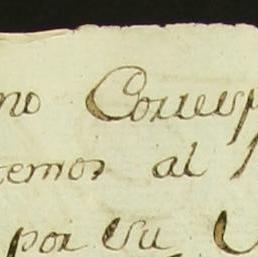 no Corresp
temos al
por su